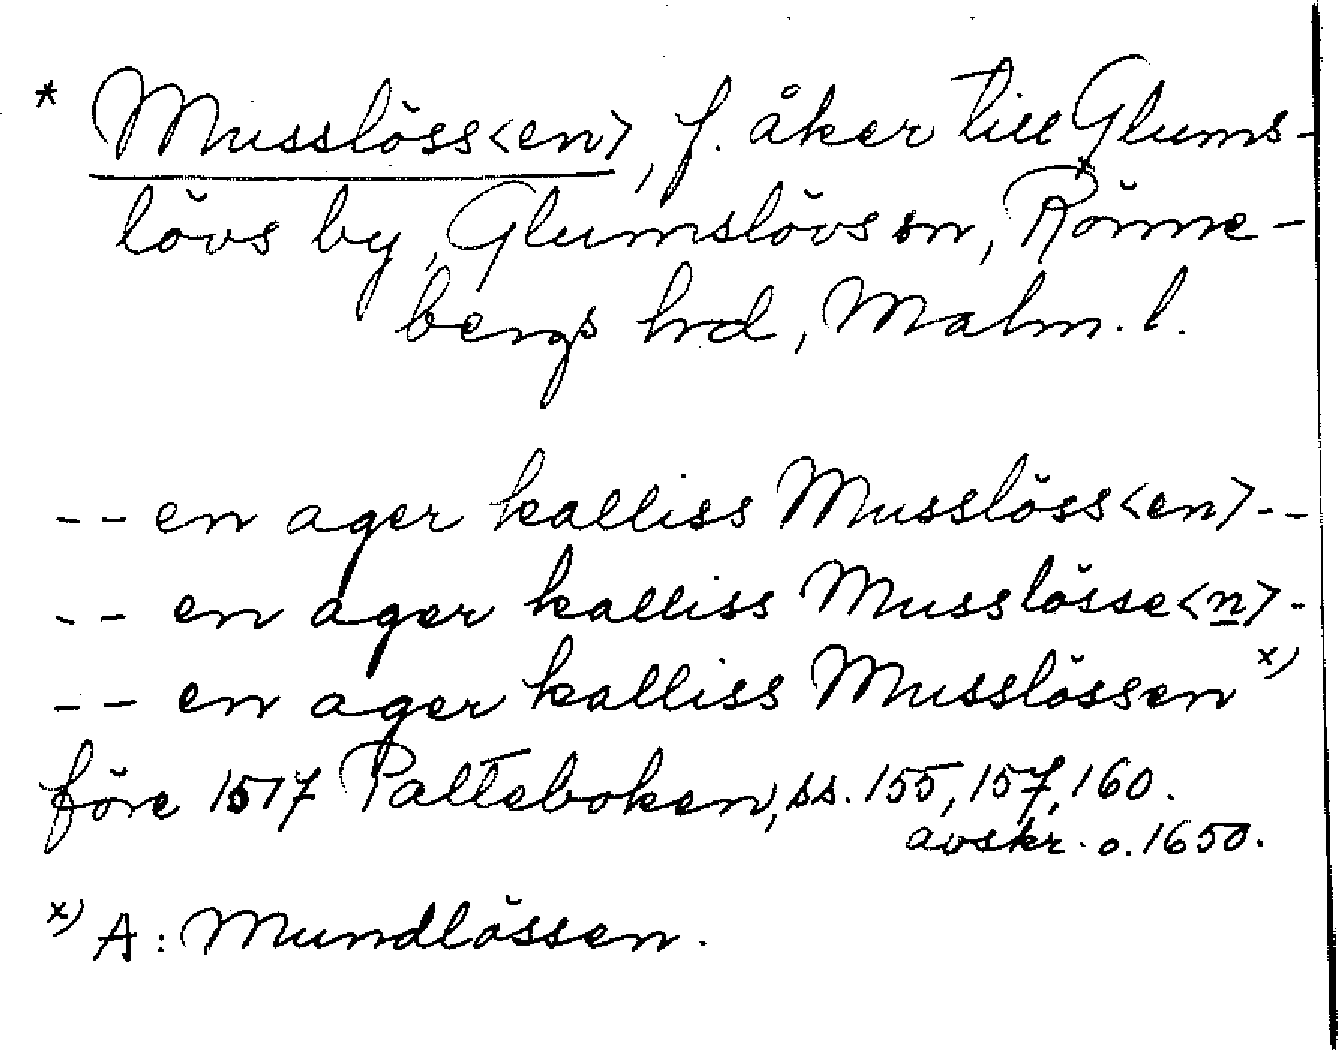 * Musslöss<en>, f. åker till Glums-
lövs by, Glumslövs sn, Rönne-
bergs hrd, Malm. l.
-- en ager kalliss Musslöss<en>--
-- en ager kalliss Musslösse<n>-
-- en ager kalliss Musslössen x)
före 1517 Palteboken, ss. 155, 157, 160.
avskr. o. 1650.
x) A: Mundlössen.